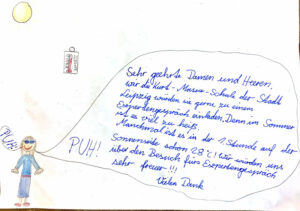 PUH!
PUH!
Sehr geehrte Damen und Herren,
wir die Kurt-Masur-Schule der Stadt
Leipzig würden sie gerne zu einem
Expertengespräch einladen. Denn im Sommer
ist es viel zu heiß.
Manchmal ist es in der 1. Stunde auf der
Sonnenseite schon 28°C! Wir würden uns
über den Besuch fürs Expertengespräch
sehr freuen!!!
Vielen Dank